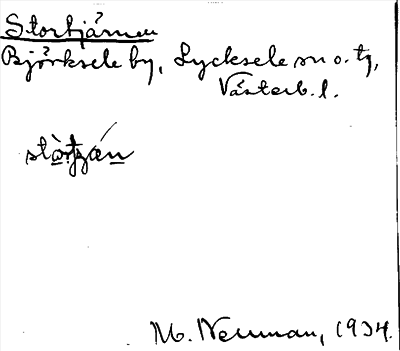 Stortjärnen
Björksele by, Lycksele sn o. tg,
Västerb. l.
M. Neuman, 1934.